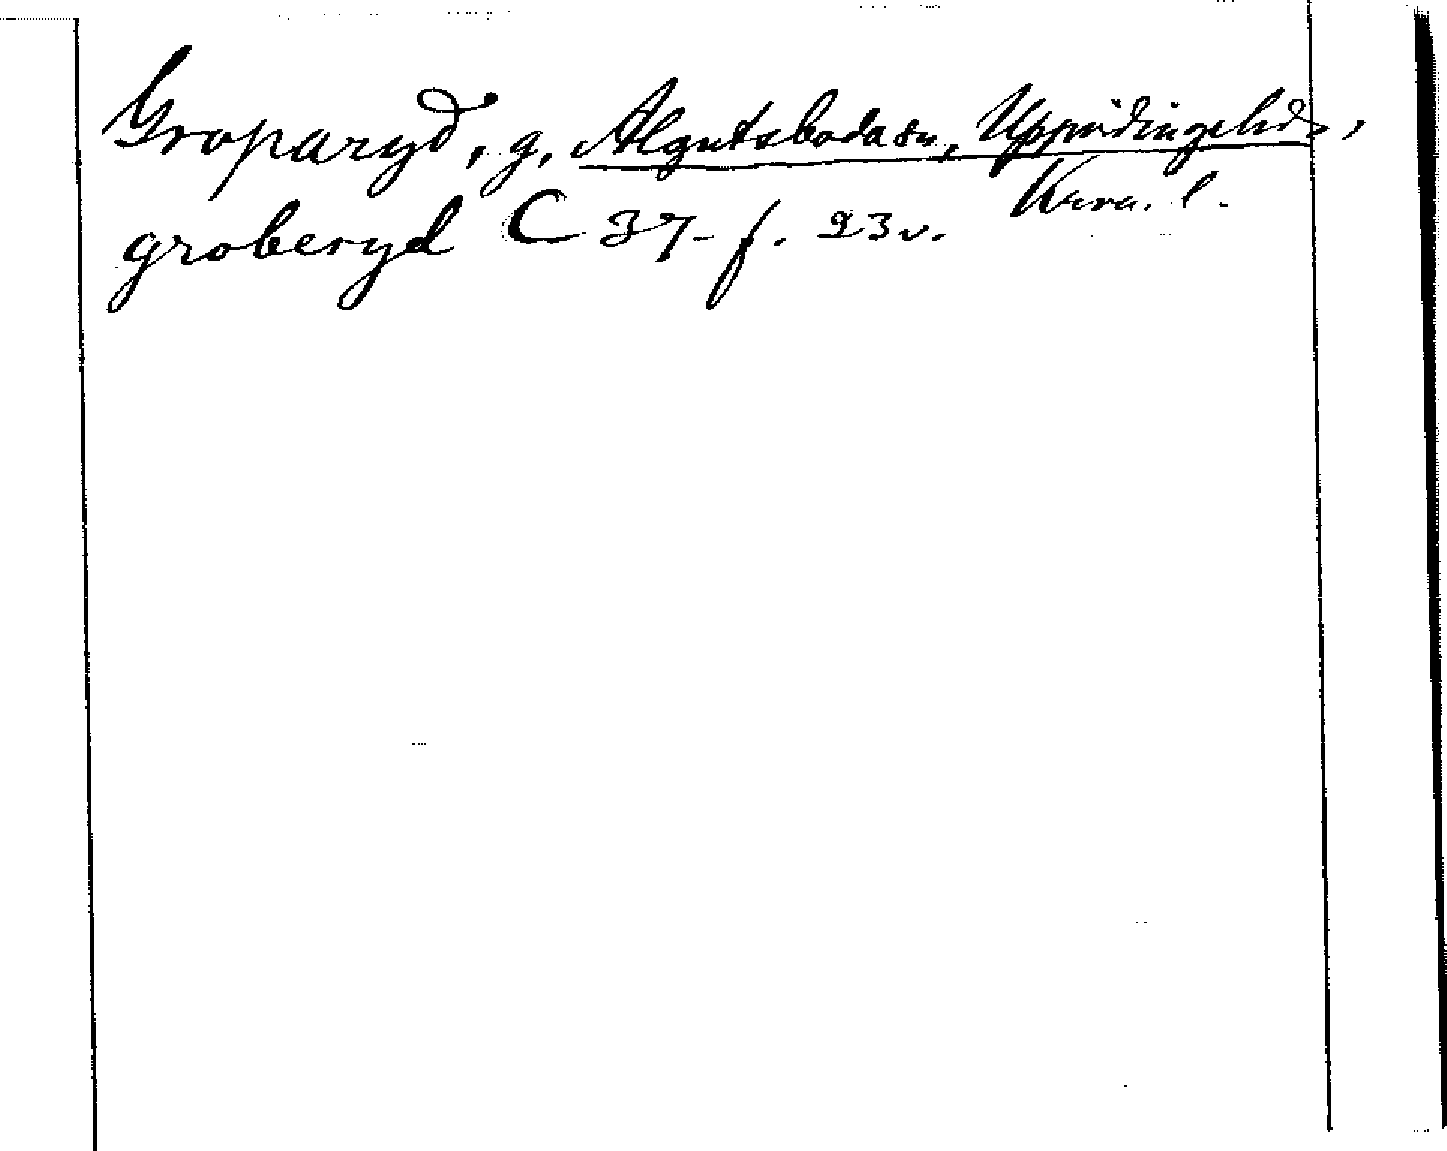 Groparyd, g, Algutsboda sn, Uppvidinge hd,
Kron. l.
groberyd C 37 - f. 23 v.